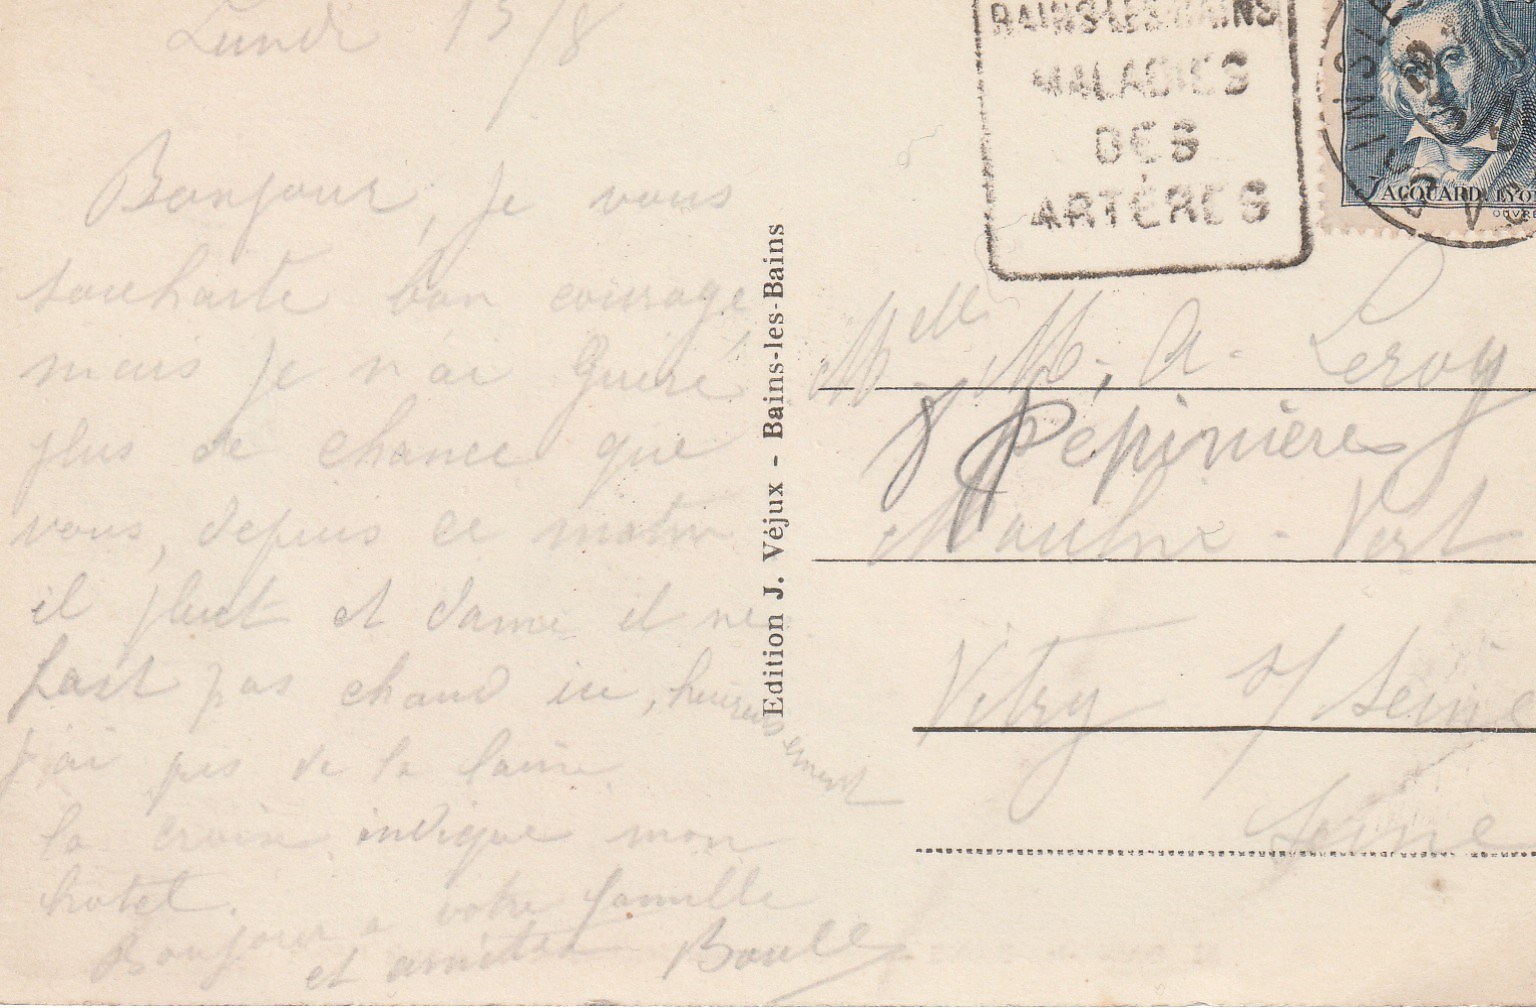 Lundi 15/8
Bonjour, je vous
souhaite bon courage
mais je n'ai guère
plus de chance que
vous, depuis ce matin
il pleut et dame il ne
fait pas chaud ici, heureusement
j'ai pris de la laine
la croix indique mon
hotel.
Bonjour a votre famille
et amitiés Boule
Edition J. Véjux - Bains-les-Bains
BAINS-LES-BAINS
MALADIES
DES
ARTÈRES
JACQUARD. LYO
Melle M. A. Leroy
Pépinières
Moulin-Vert
Vitry s/ Seine
Seine